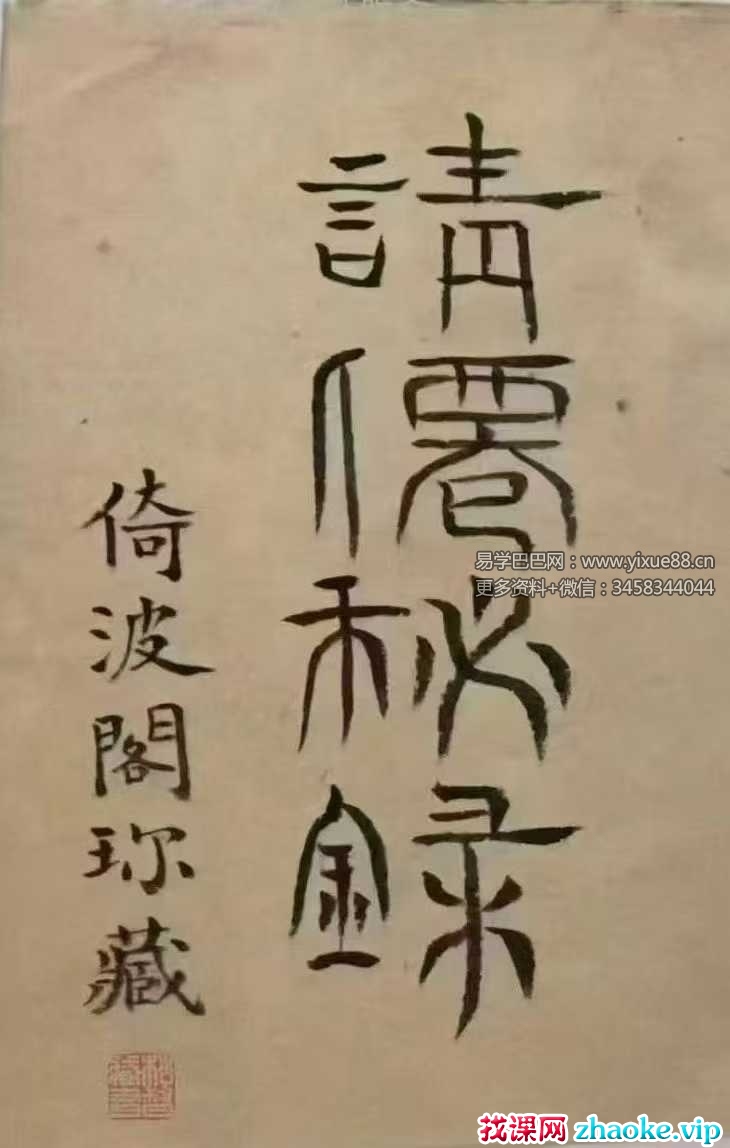 請僊秘録
倚波閣珎藏
易学巴巴网：www.yixue88.cn
更多资料+微信：3458344044
找课网 zhaoke.vip